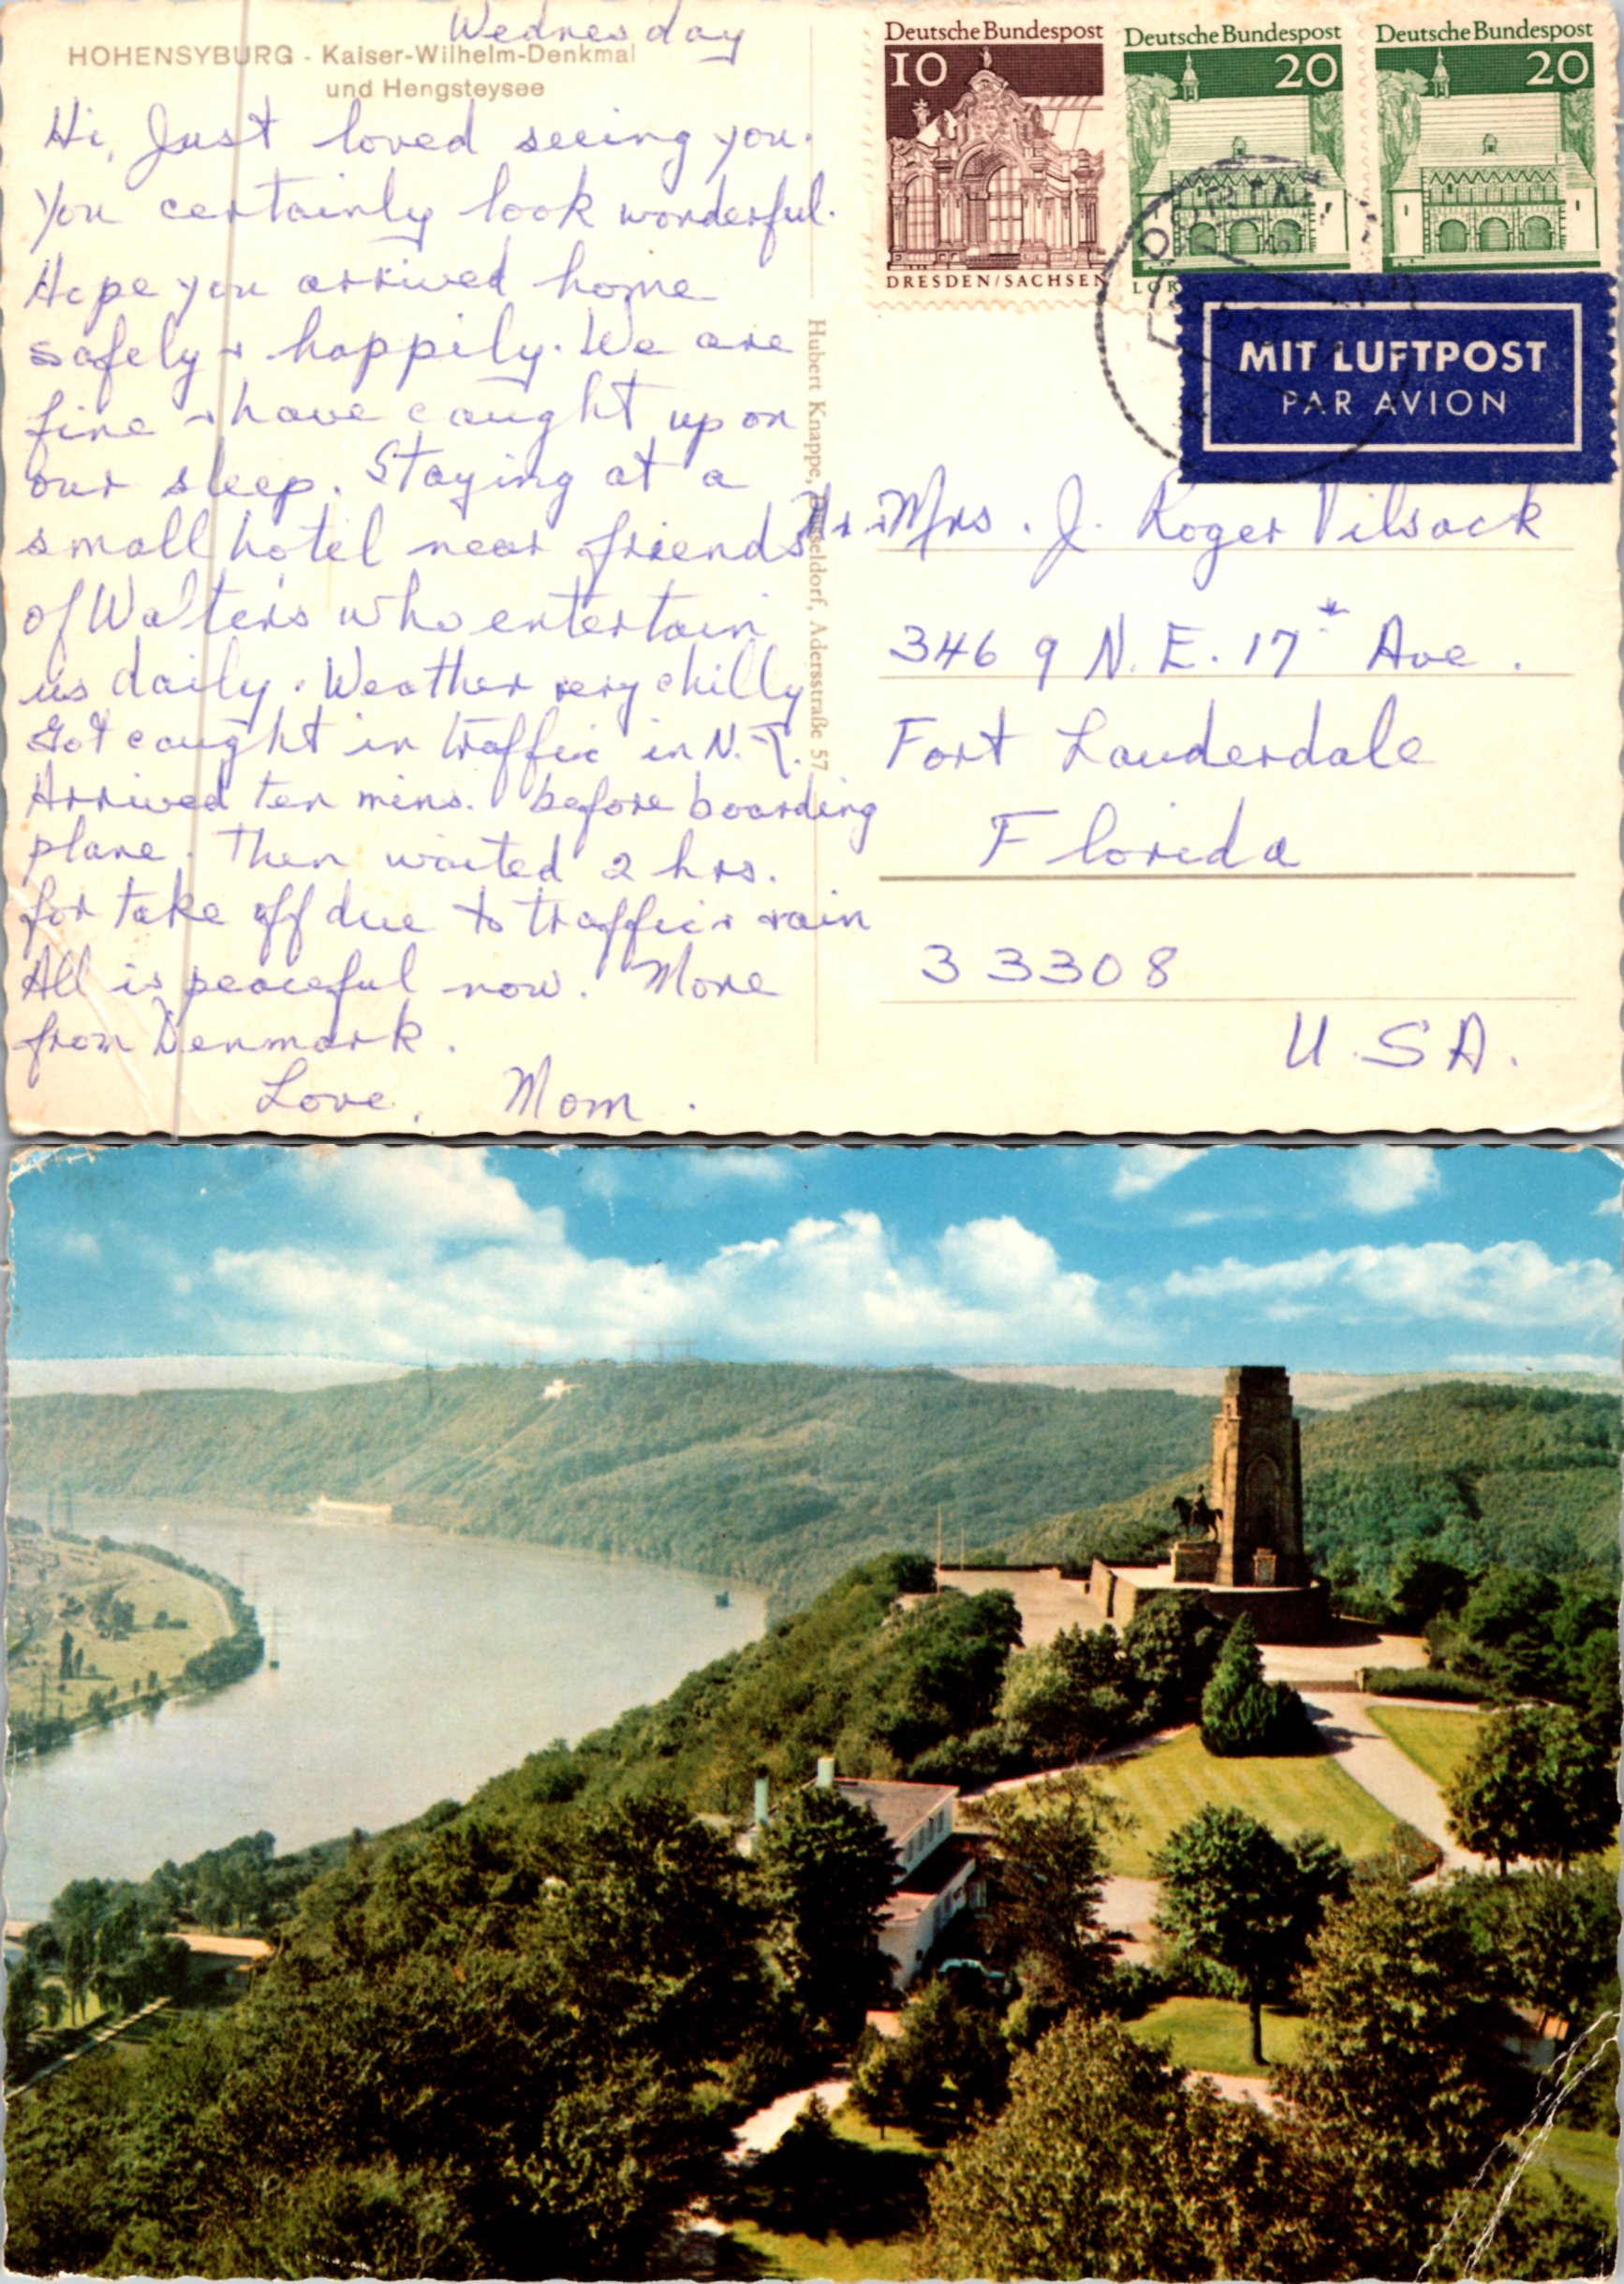 Wednesday
HOHENSYBURG - Kaiser-Wilhelm-Denkmal
und Hengsteysee
Hi, Just loved seeing you.
You certainly look wonderful.
Hope you arrived home
safely + happily. We are
fine + have caught up on
our sleep. Staying at a
small hotel near friends
of Walters who entertain
us daily. Weather very chilly
Got caught in traffic in N.Y.
Arrived ten mins. before boarding
plane. Then waited 2 hrs.
for take off due to traffic + rain
All is peaceful now. More
from Denmark.
Love, Mom.
Hubert Knappe, Düsseldorf, Adersstraße 57
Deutsche Bundespost
10
DRESDEN/SACHSEN
Deutsche Bundespost
20
Deutsche Bundespost
20
MIT LUFTPOST
PAR AVION
Mrs. J. Roger Vilsack
3469 N.E. 17th Ave.
Fort Lauderdale
Florida
33308
U.S.A.